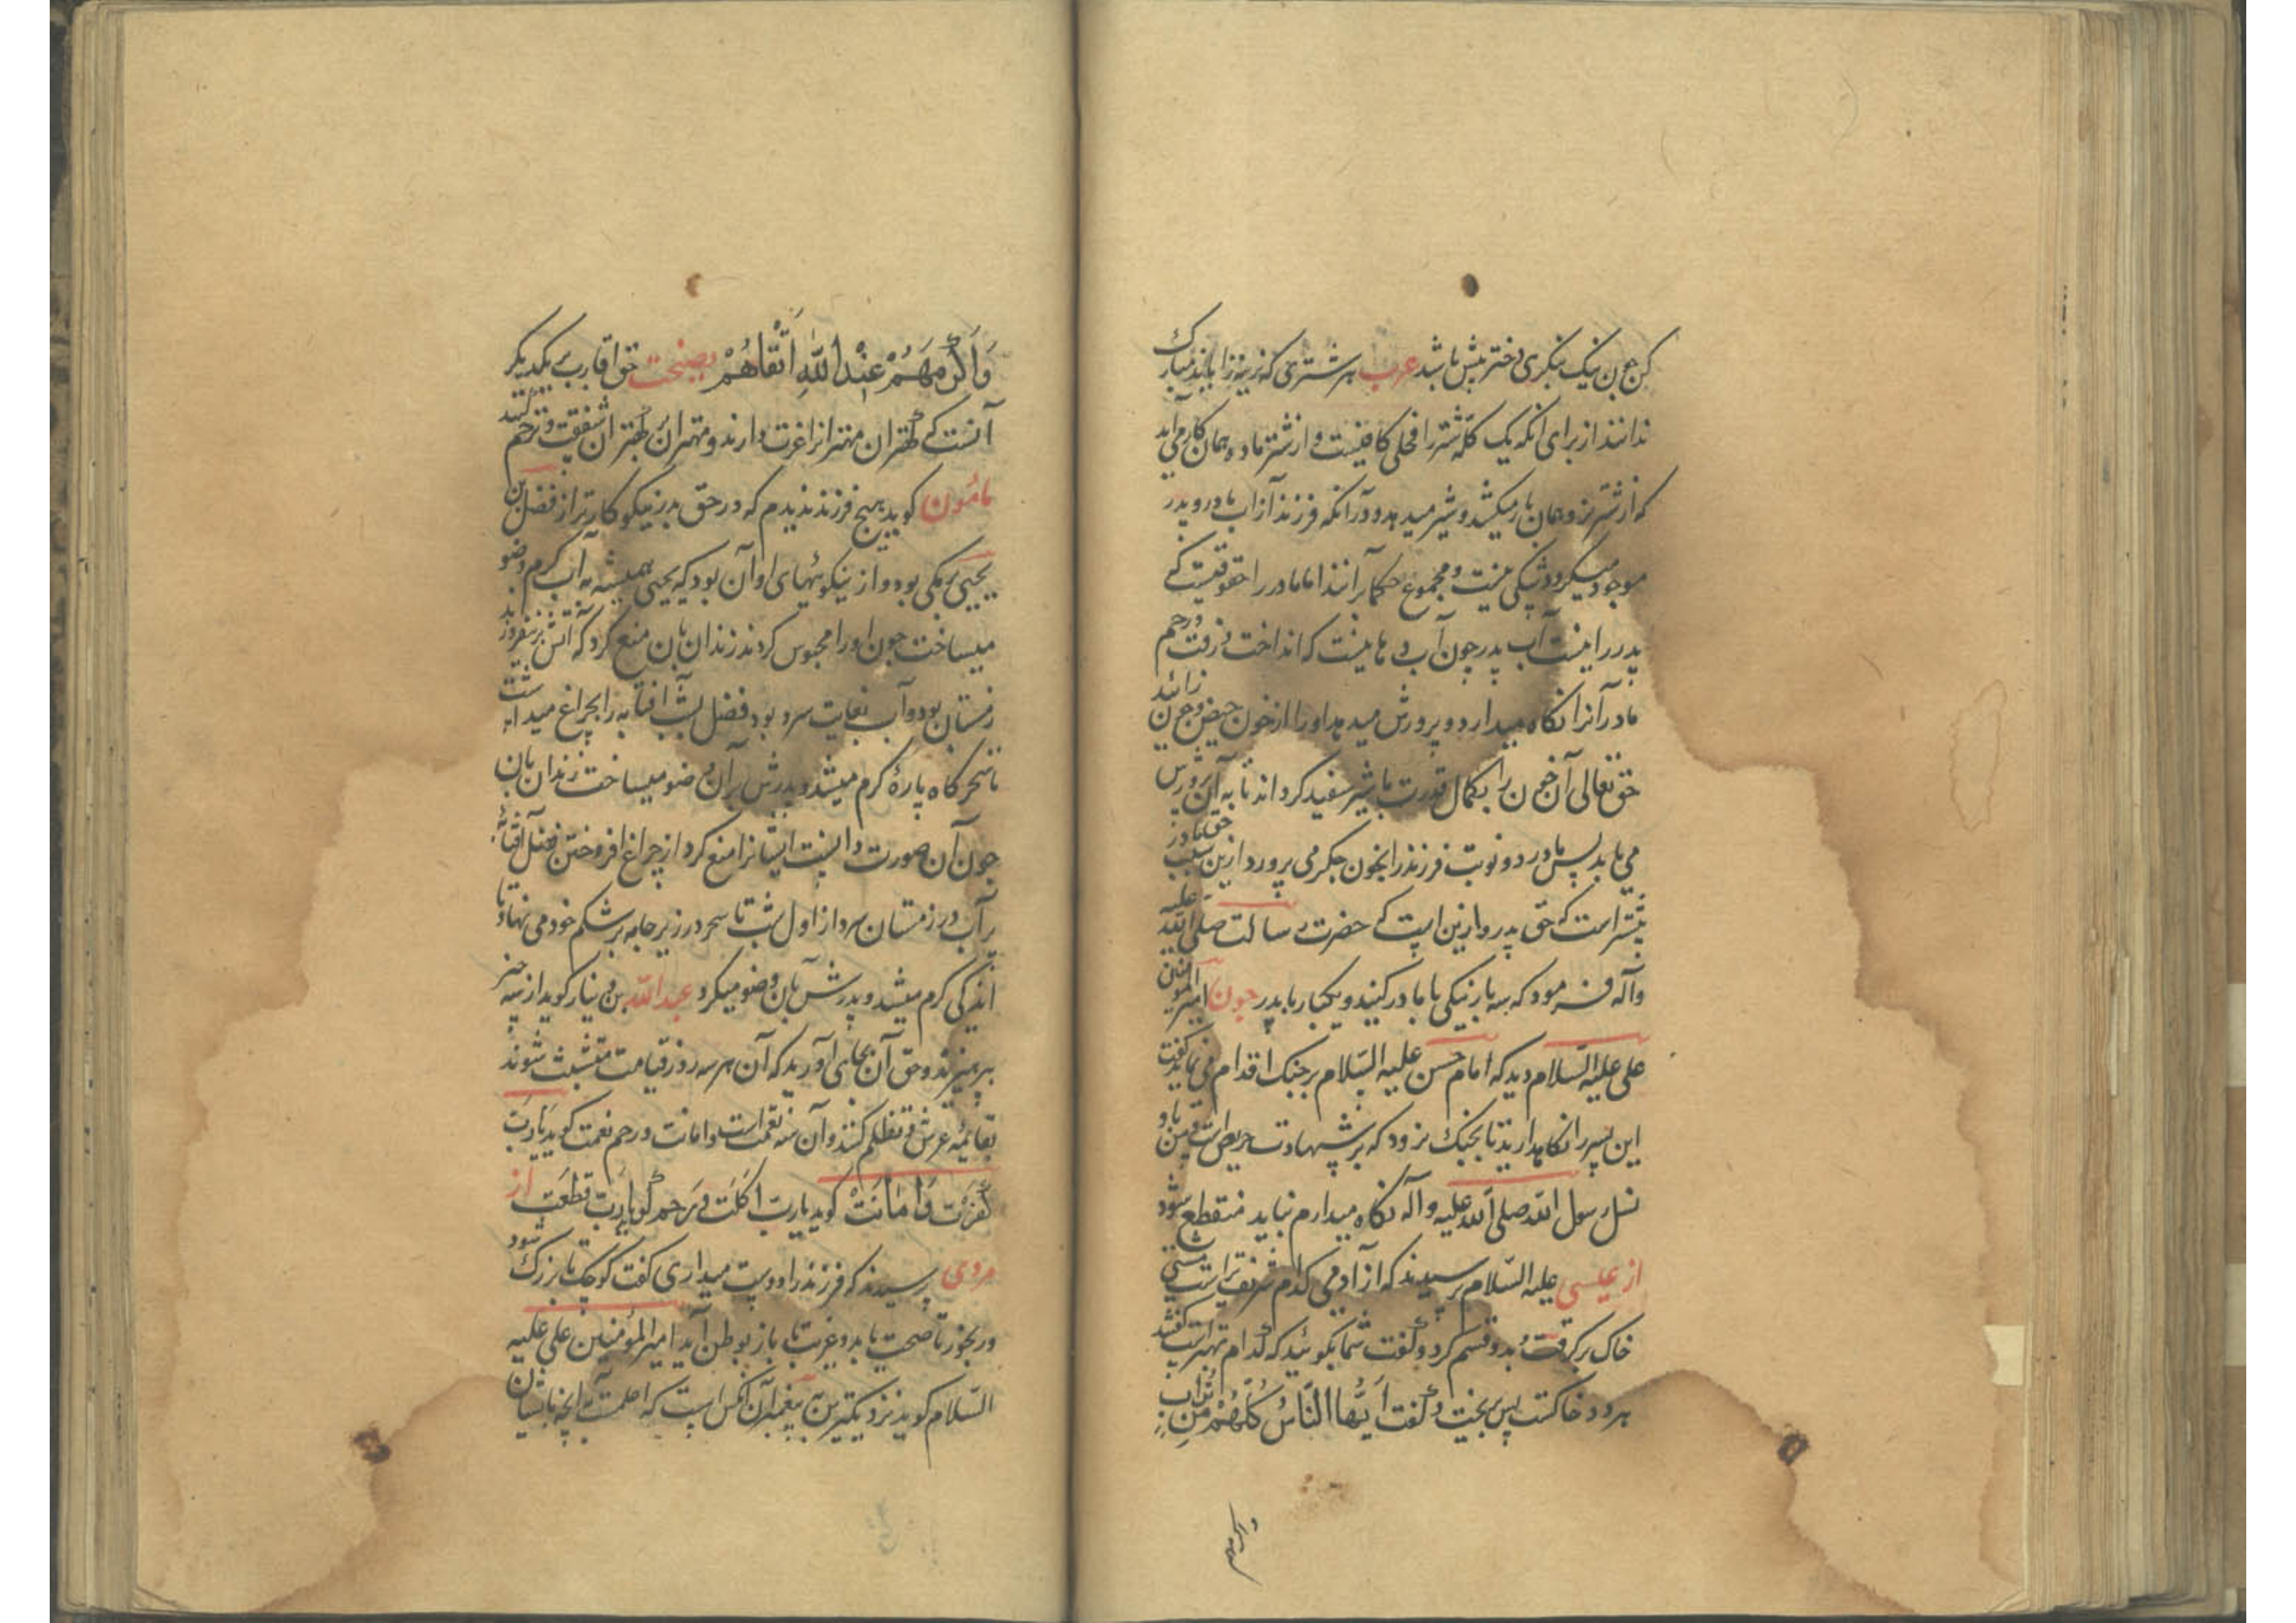 کن چون نیک بنگری دختر بیش باشد عرب هر شتری که نرینه زاید آنرا مبارک
ندانند از برای آنکه یک گله شتر را فحلی کافیست و از شتر ماده همان کار می آید
که از شتر نر و همان بار میکشد و شیر میدهد و در آنکه فرزند از آب مادر و پدر
موجود میگردد شکی نیست و مجموع حکما برآنند اما مادر را حقوقیست که
پدر را نیست آب پدر چون آب دهانیست که انداخت و رفت و رحم
مادر آنرا نگاه میدارد و پرورش میدهد او را از خون حیض و چون زائد
حق تعالی آن خون را بکمال قدرت با شیر سفید گرداند تا به آن پرورش
می یابد پس مادر دو نوبت فرزند را بخون جگر می پرورد ازین سبب حق مادر
بیشتر است که حق پدر و ازین است که حضرت رسالت صلی الله علیه
وآله فرمود که سه بار نیکی با مادر کنید و یکبار با پدر چون امیر المؤمنین
علی علیه السّلام دید که امام حسن علیه السّلام بر جنگ اقدام می نماید گفت
این پسر را نگاهدارید تا بجنگ نرود که بر شهادت حریص است و من باو
نسل رسول الله صلی الله علیه وآله نگاه میدارم نباید منقطع شود
از عیسی علیه السّلام پرسیدند که از آدمی کدام شریفتر است مشتی
خاک برگرفت و بدو قسم کرد و گفت شما بگوئید که کدام بهتر است گفتند
هر دو خاکست پس بریخت و گفت اَیُّها النّاسُ کُلُّهُمْ مِن تُراب
واکرمهم
وَاَکْرَمُهُمْ عِنْدَ اللّهِ اَتْقاهُمْ نصیحت حق اقارب بر یکدیگر
آنست که کهتران مهتران را عزت دارند و مهتران بر کهتران شفقت و ترحم کنند
مامون گوید هیچ فرزند ندیدم که در حق پدر نیکوکارتر از فضل بن
یحیی برمکی بود و از نیکوئیهای او آن بود که یحیی همیشه به آب گرم وضو
میساخت چون او را محبوس کردند زندان بان منع کرد که آتش برنیفروزند
زمستان بود و آب بغایت سرد بود فضل بشب آفتابه را بچراغ میداشت
تا سحرگاه پارهٔ گرم میشد و پدرش بآن وضو میساخت زندان بان
چون آن صورت دانست ایشانرا منع کرد از چراغ افروختن فضل آفتابه
پر آب در زمستان سرد از اول شب تا سحر در زیر جامه بر شکم خود می نهاد تا
اندکی گرم میشد و پدرش بآن وضو میکرد عبدالله بن دینار گوید از سه چیز
بپرهیزید و حق آن بجای آورید که آن هر سه روز قیامت متشبث شوند
بقائمه عرش و تظلم کنند و آن سه نعمت است و امانت و رحم نعمت گوید یا رَبّ
کُفِرَت وَامانَتْ گوید یارب اُکَلْت وَ رَحِم گوید یارب قُطِعَت از
مردی پرسیدند که فرزند را دوست میداری گفت کوچک تا بزرگ شود
و رنجور تا صحت یابد و غریب تا باز بوطن آید امیرالمؤمنین علی علیه
السّلام گوید نزدیکترین بپیغمبران آنکس است که اعلمست بآنچه بایشان